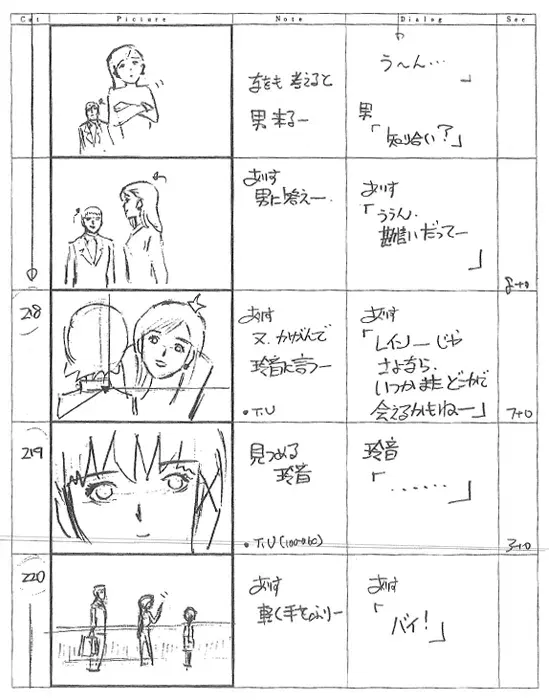 Cut Picture Note Dialog Sec
う〜ん…
」
考えると
男 来るー
男
「知り合い?」
ありす
男に答えー
ありす
「ううん.
勘違いだってー
」
8+0
218
ありす
又、かがんで
玲音に言うー
• T.U
ありす
「レインーじゃ
さよなら、
いつかまた どこかで
会えるかもねー」
7+0
219
見つめる
玲音
• T.U (100→60)
玲音
「......」
3+0
220
ありす
軽く手をふりー
ありす
「
バイ!
」